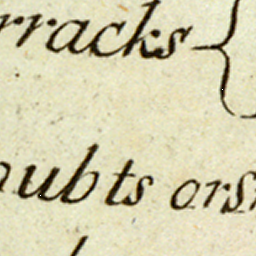 rracks
oubts ors